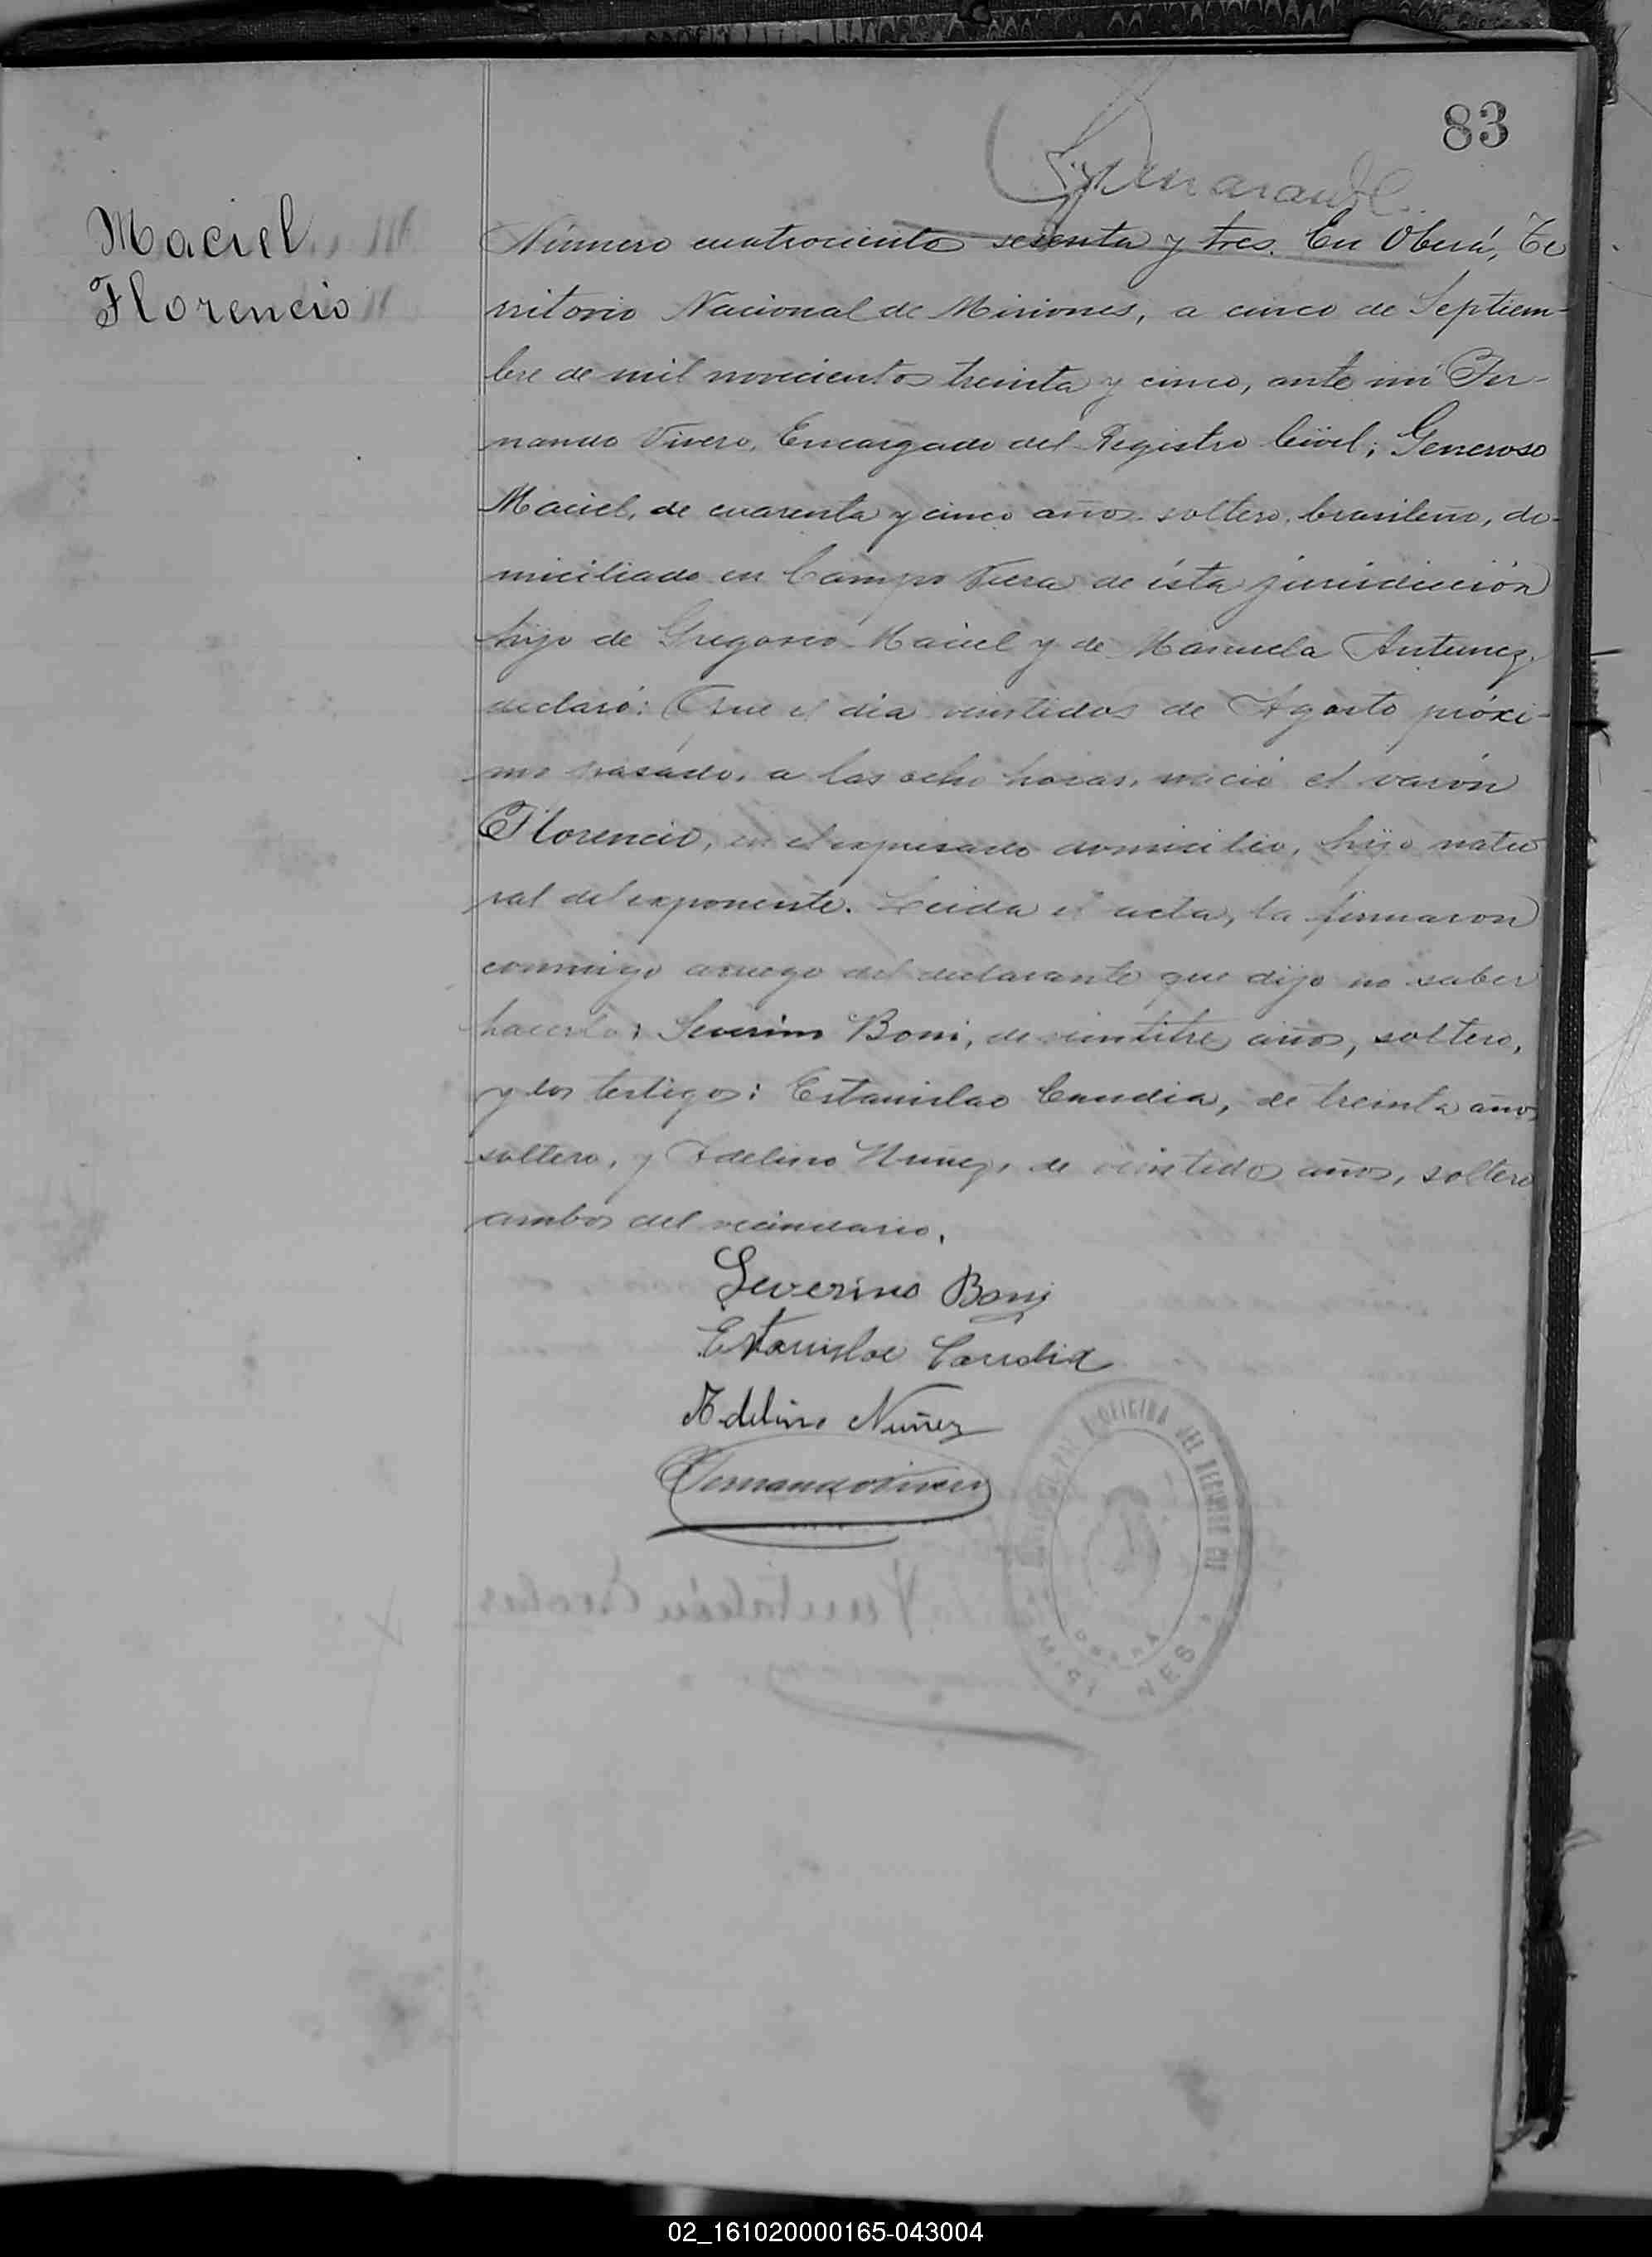 83
Maciel
Florencio
Número cuatrociento sesenta y tres. En Oberá, Te
rritorio Nacional de Misiones, a cinco de Septiem-
bre de mil novecientos treinta y cinco, ante mi Fer-
nando Vivero, Encargado del Registro Civil; Generoso
Maciel, de cuarenta y cinco años soltero, brasileño, do-
miciliado en Campo Viera de ésta jurisdicción
hijo de Gregorio Maciel y de Manuela Antunez,
declaró: Que el día veintidos de Agosto próxi-
mo pasado, a las ocho horas, nació el varón
Florencio, en el expresado domicilio, hijo natu
ral del exponente. Leida el acta, la firmaron
conmigo aruego del declarante que dijo no saber
hacerlo: Severino Boni, de veintitres años, soltero,
y los testigos: Estanislao Candia, de treinta años
soltero, y Adelino Nuñez, de veintidos años, soltero
ambos del vecindario.
Severino Boni
Estanislao Candia
Adelino Nuñez
Fernando Vivero
OFICINA DEL
OBERÁ
02_161020000165-043004